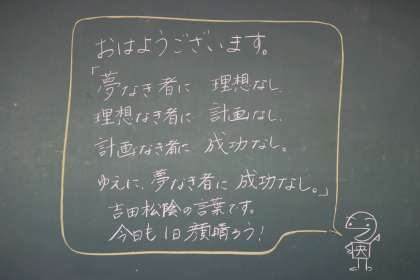 おはようございます。
「夢なき者に 理想なし、
理想なき者に 計画なし、
計画なき者に 成功なし。
ゆえに、夢なき者に 成功なし。」
吉田松陰の言葉です。
今日も1日顔晴ろう!
快